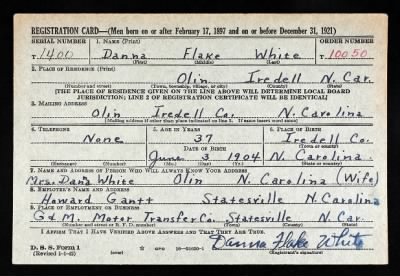 REGISTRATION CARD—(Men born on or after February 17, 1897 and on or before December 31, 1921)
SERIAL NUMBER 1. NAME (Print) ORDER NUMBER
T 1400 Danna Flake White T 10050
(First) (Middle) (Last)
2. PLACE OF RESIDENCE (Print)
Olin Iredell N. Car.
(Number and street) (Town, township, village, or city) (County) (State)
[THE PLACE OF RESIDENCE GIVEN ON THE LINE ABOVE WILL DETERMINE LOCAL BOARD
JURISDICTION; LINE 2 OF REGISTRATION CERTIFICATE WILL BE IDENTICAL]
3. MAILING ADDRESS
Olin Iredell Co. N. Carolina
[Mailing address if other than place indicated on line 2. If same insert word same]
4. TELEPHONE 5. AGE IN YEARS 6. PLACE OF BIRTH
None 37 Iredell Co.
DATE OF BIRTH (Town or county)
June 3 1904 N. Carolina
(Exchange) (Number) (Mo.) (Day) (Yr.) (State or country)
7. NAME AND ADDRESS OF PERSON WHO WILL ALWAYS KNOW YOUR ADDRESS
Mrs. Dana White Olin N. Carolina (Wife)
8. EMPLOYER'S NAME AND ADDRESS
Howard Gantt Statesville N. Carolina
9. PLACE OF EMPLOYMENT OR BUSINESS
G & M. Motor Transfer Co. Statesville N. Car.
(Number and street or R. F. D. number) (Town) (County) (State)
I AFFIRM THAT I HAVE VERIFIED ABOVE ANSWERS AND THAT THEY ARE TRUE.
D. S. S. FORM 1 Danna Flake White
(Revised 1-1-42) GPO 16—21630-1 (Registrant's signature)